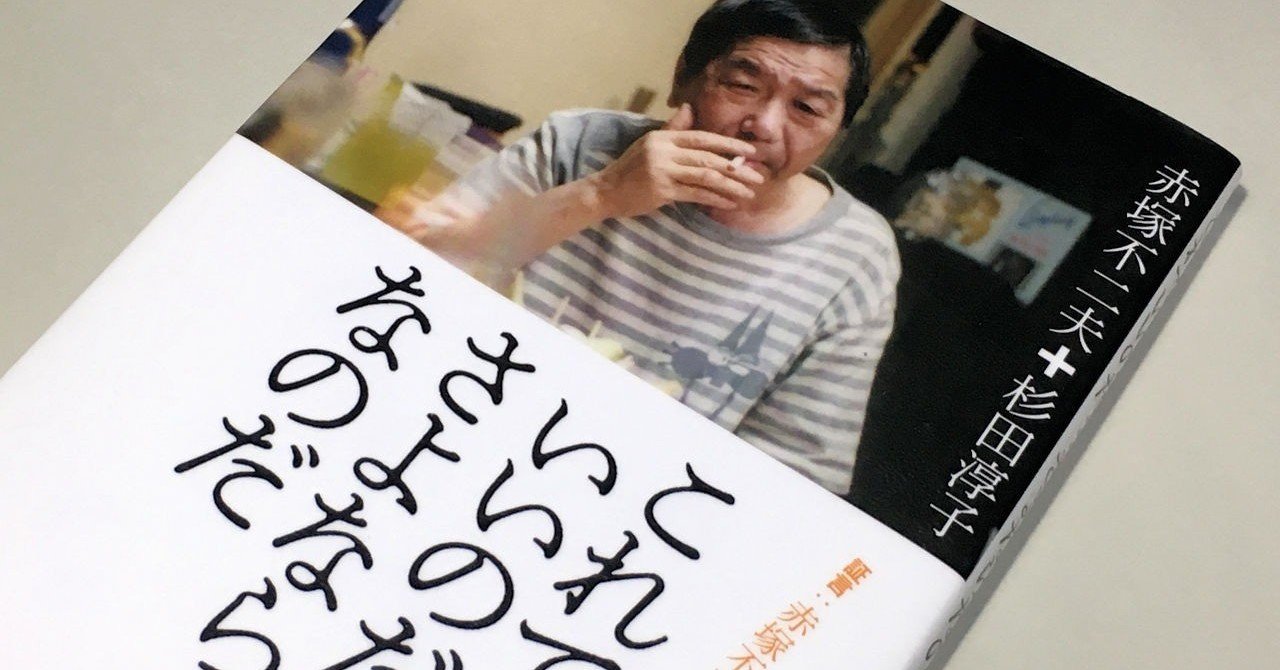 赤塚不二夫+杉田淳子
証言:赤塚不
これで
いいのだ
さよなら
なのだ